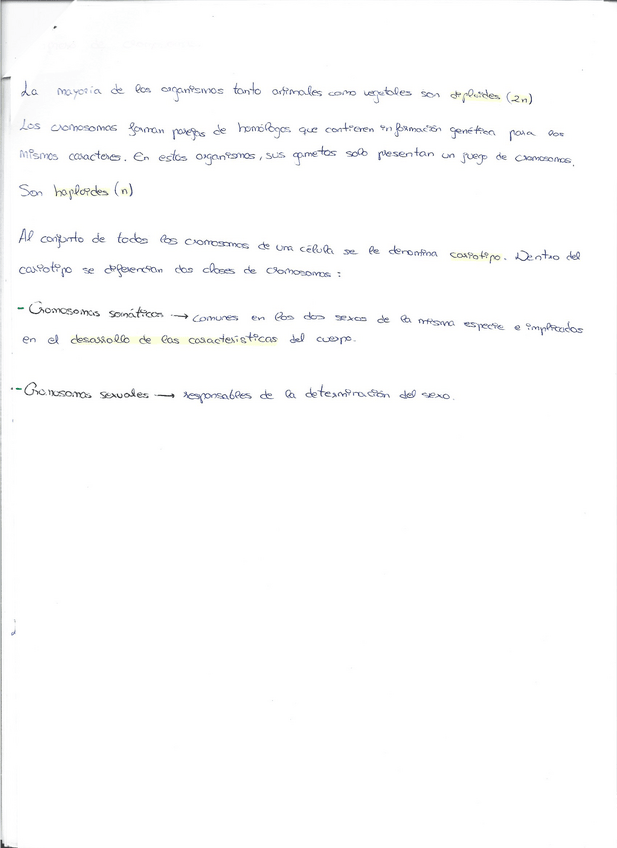 La mayoria de los organismos tanto animales como vegetales son diploides (2n)
Los cromosomas forman parejas de homólogos que contienen información genética para los
mismos caracteres. En estos organismos, sus gametos solo presentan un juego de cromosomas.
Son haploides (n)
Al conjunto de todos los cromosomas de una célula se le denomina cariotipo. Dentro del
cariotipo se diferencian dos clases de cromosomas:
- Cromosomas somáticos → comunes en los dos sexos de la misma especie e implicados
en el desarrollo de las caracteristicas del cuerpo.
- Cromosomas sexuales → responsables de la determinación del sexo.